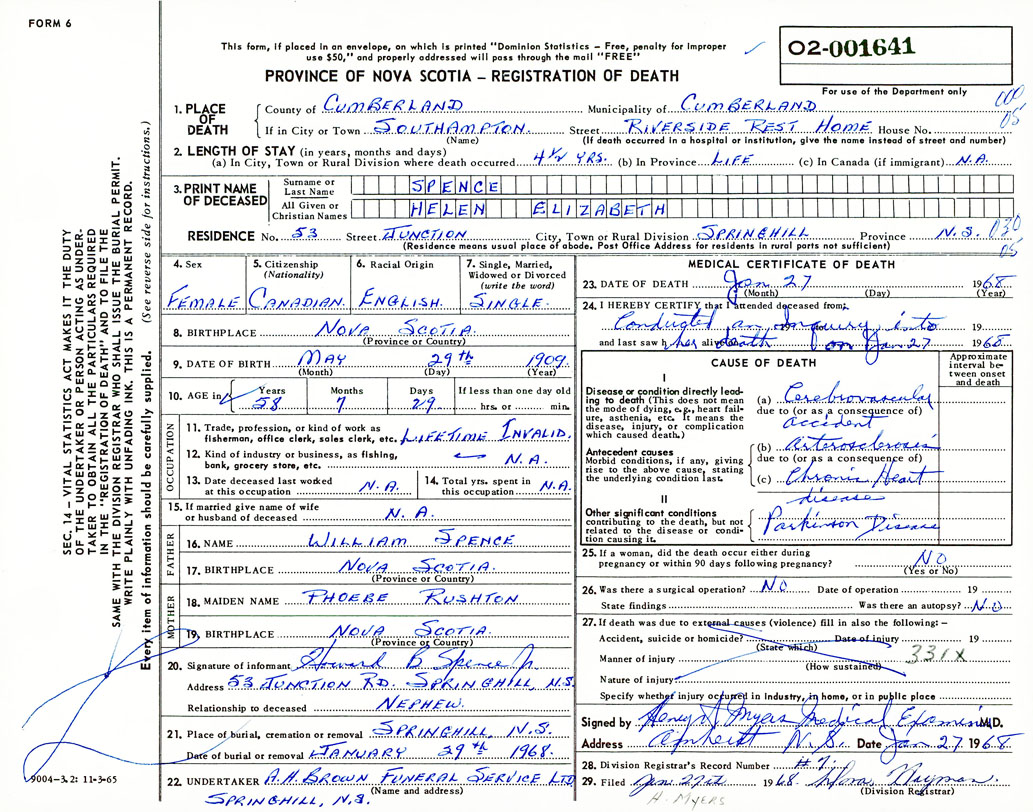 FORM 6
This form, if placed in an envelope, on which is printed "Dominion Statistics – Free, penalty for improper
use $50," and properly addressed will pass through the mail "FREE"
02-001641
PROVINCE OF NOVA SCOTIA – REGISTRATION OF DEATH
For use of the Department only
000
05
1. PLACE OF DEATH County of CUMBERLAND Municipality of CUMBERLAND
If in City or Town SOUTHAMPTON. Street RIVERSIDE REST HOME House No.
(Name) (If death occurred in a hospital or institution, give the name instead of street and number)
2. LENGTH OF STAY (in years, months and days)
(a) In City, Town or Rural Division where death occurred 4½ YRS. (b) In Province LIFE (c) In Canada (if immigrant) N.A.
3. PRINT NAME OF DECEASED
Surname or Last Name SPENCE
All Given or Christian Names HELEN ELIZABETH
RESIDENCE No. 53 Street JUNCTION City, Town or Rural Division SPRINGHILL Province N.S. 030
05
(Residence means usual place of abode. Post Office Address for residents in rural parts not sufficient)
4. Sex FEMALE
5. Citizenship (Nationality) CANADIAN.
6. Racial Origin ENGLISH.
7. Single, Married, Widowed or Divorced (write the word) SINGLE.
8. BIRTHPLACE NOVA SCOTIA.
(Province or Country)
9. DATE OF BIRTH MAY 29th 1909.
(Month) (Day) (Year)
10. AGE in Years 58 Months 7 Days 29 If less than one day old hrs. or min.
OCCUPATION
11. Trade, profession, or kind of work as
fisherman, office clerk, sales clerk, etc. LIFETIME INVALID.
12. Kind of industry or business, as fishing,
bank, grocery store, etc. N.A.
13. Date deceased last worked
at this occupation N.A.
14. Total yrs. spent in
this occupation N.A.
15. If married give name of wife
or husband of deceased N.A.
FATHER
16. NAME WILLIAM SPENCE
17. BIRTHPLACE NOVA SCOTIA.
(Province or Country)
MOTHER
18. MAIDEN NAME PHOEBE RUSHTON
19. BIRTHPLACE NOVA SCOTIA.
(Province or Country)
20. Signature of informant Howard B Spence Jr.
Address 53 JUNCTION RD. SPRINGHILL, N.S.
Relationship to deceased NEPHEW.
21. Place of burial, cremation or removal SPRINGHILL, N.S.
Date of burial or removal JANUARY 29th 1968.
22. UNDERTAKER A.H. BROWN FUNERAL SERVICE LTD
(Name and address)
SPRINGHILL, N.S.
MEDICAL CERTIFICATE OF DEATH
23. DATE OF DEATH Jan 27 1968
(Month) (Day) (Year)
24. I HEREBY CERTIFY that I attended deceased from:
Conducted an Inquiry into 19
and last saw h alive her death on Jan 27 1968
CAUSE OF DEATH
Approximate interval between onset and death
I
Disease or condition directly leading
to death (This does not mean
the mode of dying, e.g., heart failure,
asthenia, etc. It means the
disease, injury, or complication
which caused death.)
(a) Cerebrovascular
due to (or as a consequence of)
accident
Antecedent causes
Morbid conditions, if any, giving
rise to the above cause, stating
the underlying condition last.
(b) Arterosclerosis
due to (or as a consequence of)
(c) Chronic Heart
disease
II
Other significant conditions
contributing to the death, but not
related to the disease or condition
causing it.
Parkinson Disease
25. If a woman, did the death occur either during
pregnancy or within 90 days following pregnancy? NO
(Yes or No)
26. Was there a surgical operation? NO Date of operation 19
State findings Was there an autopsy? NO
27. If death was due to external causes (violence) fill in also the following: –
Accident, suicide or homicide? Date of injury 19
(State which)
Manner of injury 331X
(How sustained)
Nature of injury
Specify whether injury occurred in industry, in home, or in public place
Signed by Henry A Myers Medical Examiner M.D.
Address Amherst N.S. Date Jan 27 1968
28. Division Registrar's Record Number #7.
29. Filed Jan. 1968.
(Division Registrar)
H. MYERS
SEC. 14 – VITAL STATISTICS ACT MAKES IT THE DUTY
OF THE UNDERTAKER OR PERSON ACTING AS UNDERTAKER
TO OBTAIN ALL THE PARTICULARS REQUIRED
IN THE "REGISTRATION OF DEATH" AND TO FILE THE
SAME WITH THE DIVISION REGISTRAR WHO SHALL ISSUE THE BURIAL PERMIT.
WRITE PLAINLY WITH UNFADING INK. THIS IS A PERMANENT RECORD.
Every item of information should be carefully supplied. (See reverse side for instructions.)
9004–3.2: 11-3-65